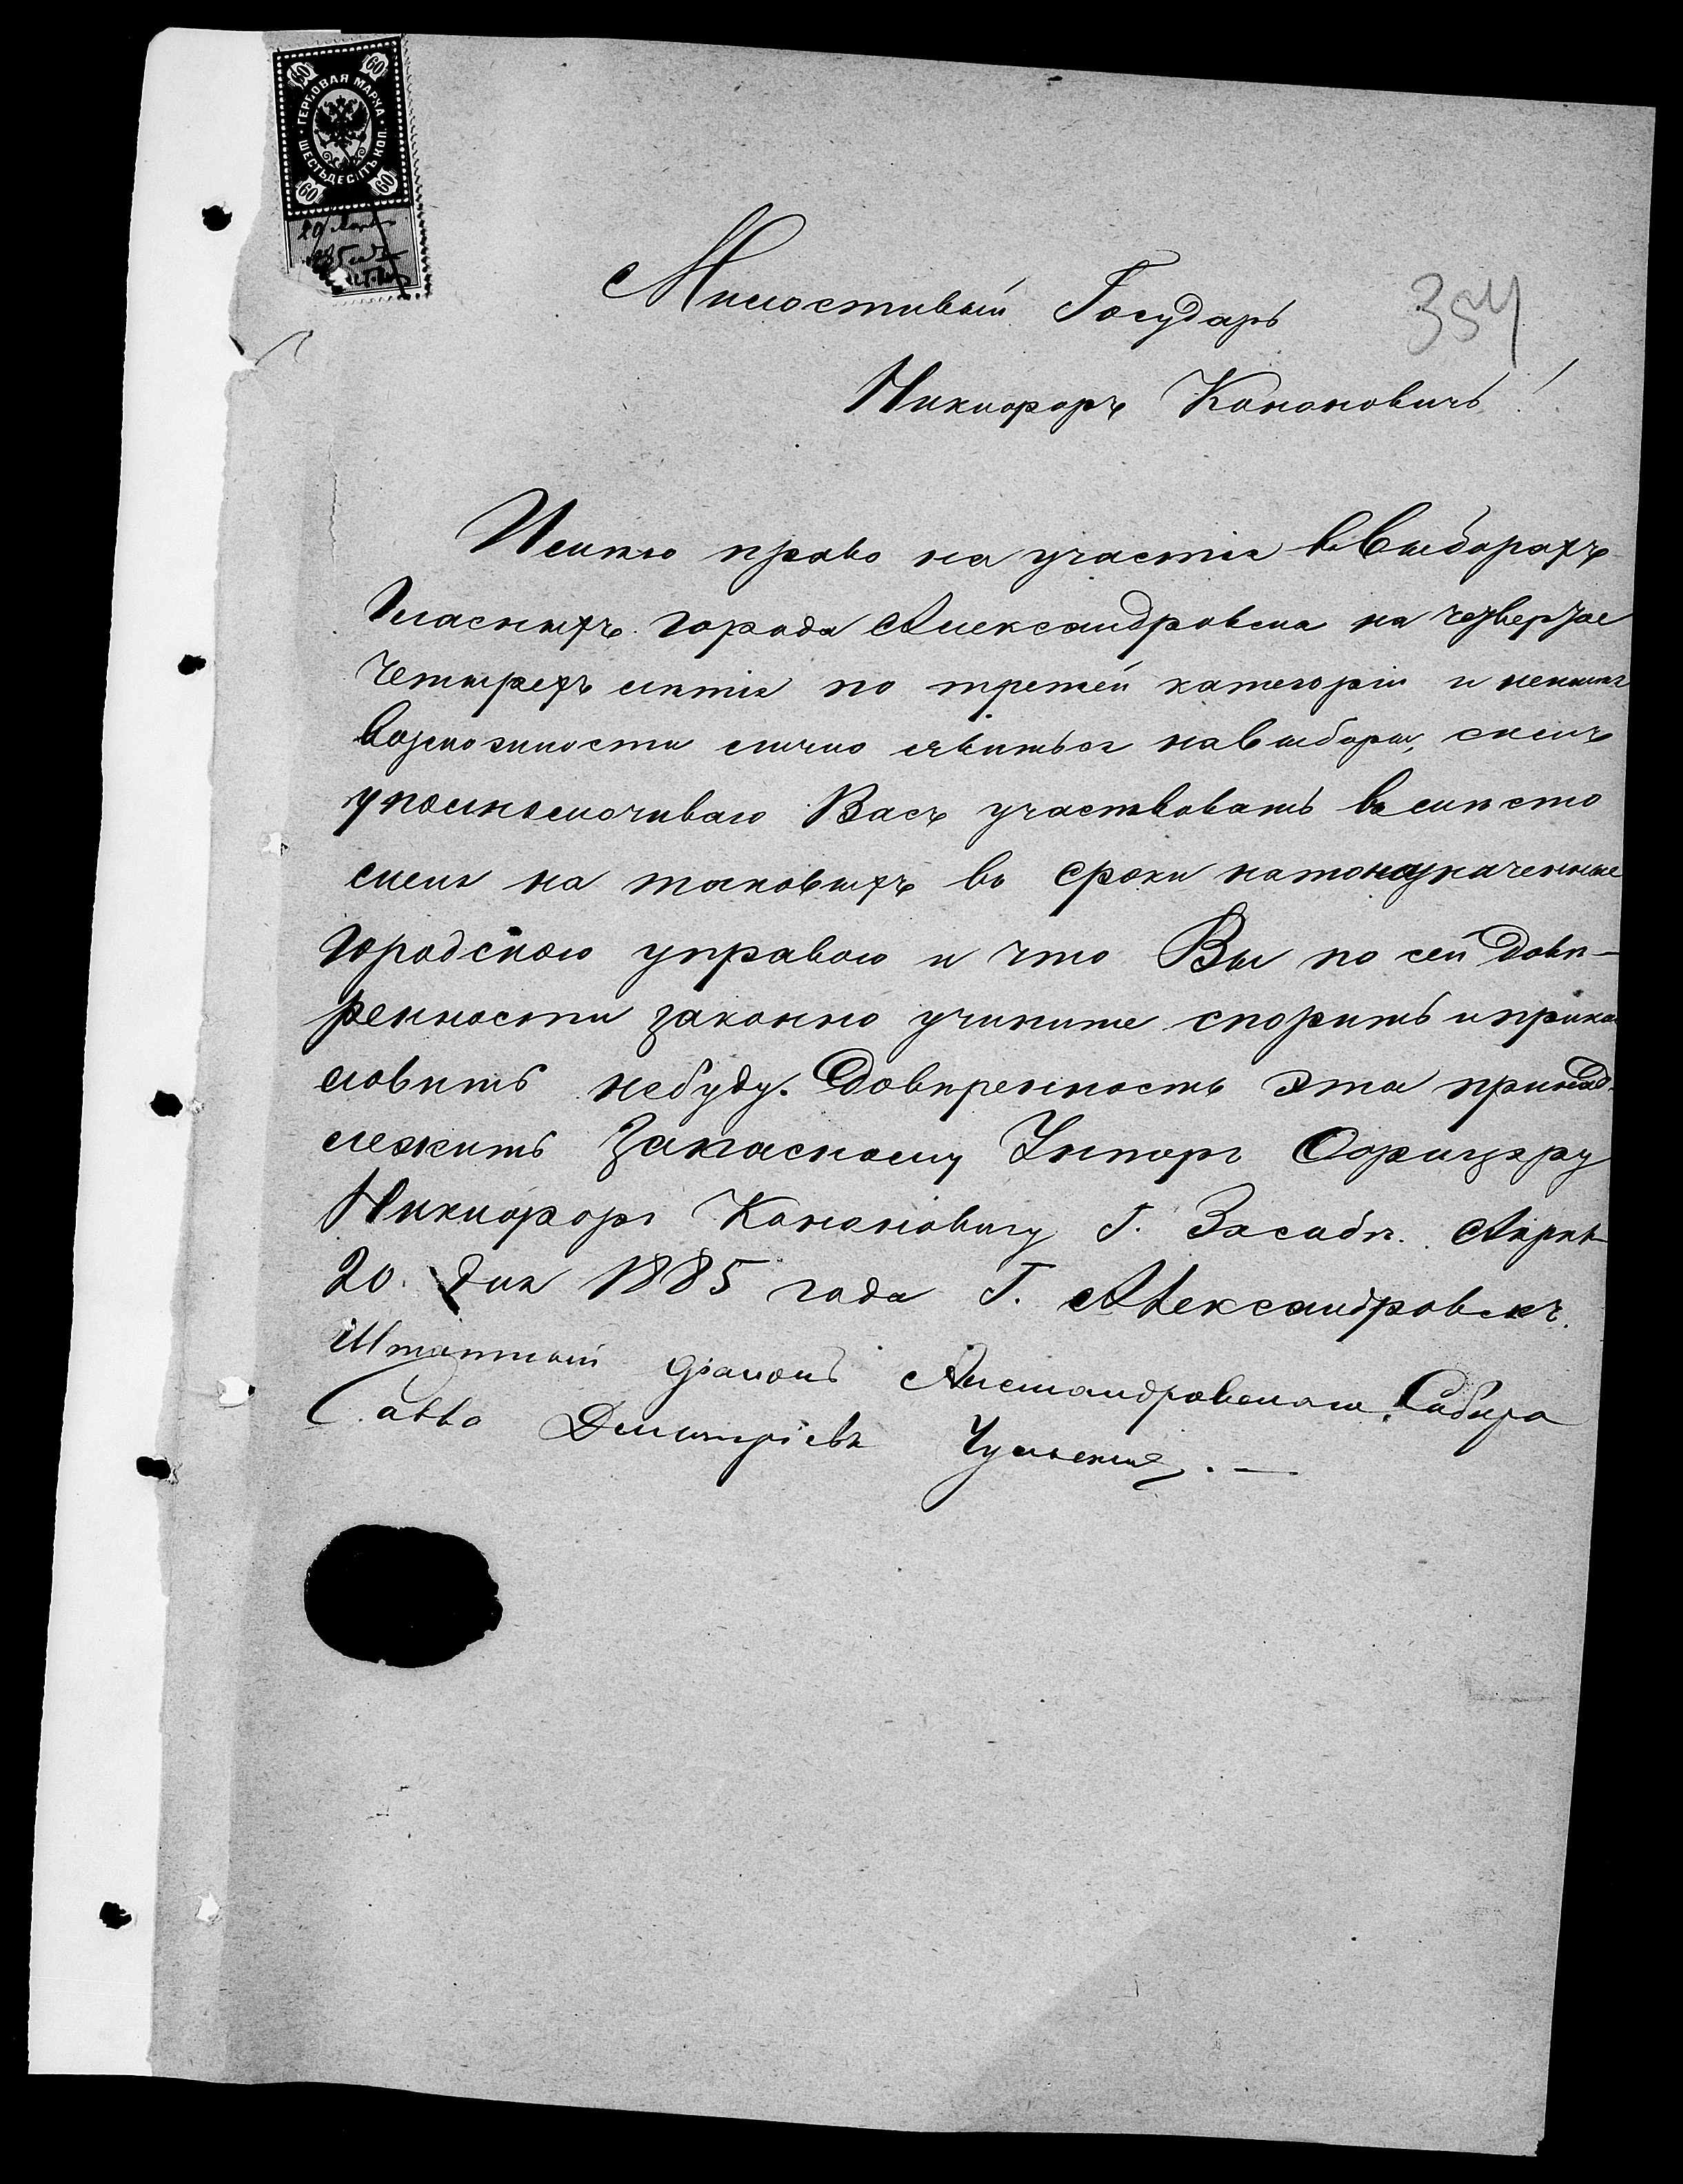 60 60
ГЕРБОВАЯ МАРКА
ШЕСТЬДЕСЯТЪ КОП.
60 60
20
Милостивый Государь
354
Никифоръ Канановичъ!
Имѣю право на участіе въ Выборахъ
Гласныхъ города Александровска на четвертое
Четырехъ лѣтіе по третей категоріи и неимѣя
Возможности лично явиться навыборы, симъ
уполномочиваю Васъ участвовать вмѣсто
меня на таковыхъ въ сроки натоназначенные
Городскою управою и что Вы по сей довѣ-
ренности законно учините спорить и прико
ловить небуду. Довѣренность эта принад-
лежить Запасному Унтеръ Офицеру
Никифору Канановичу Г. Засадѣ. Апрѣ-
20. дня 1885 года Г. Александровскъ.
Штатный діаконъ Александровскаго Собора
Савва Дмитріевъ